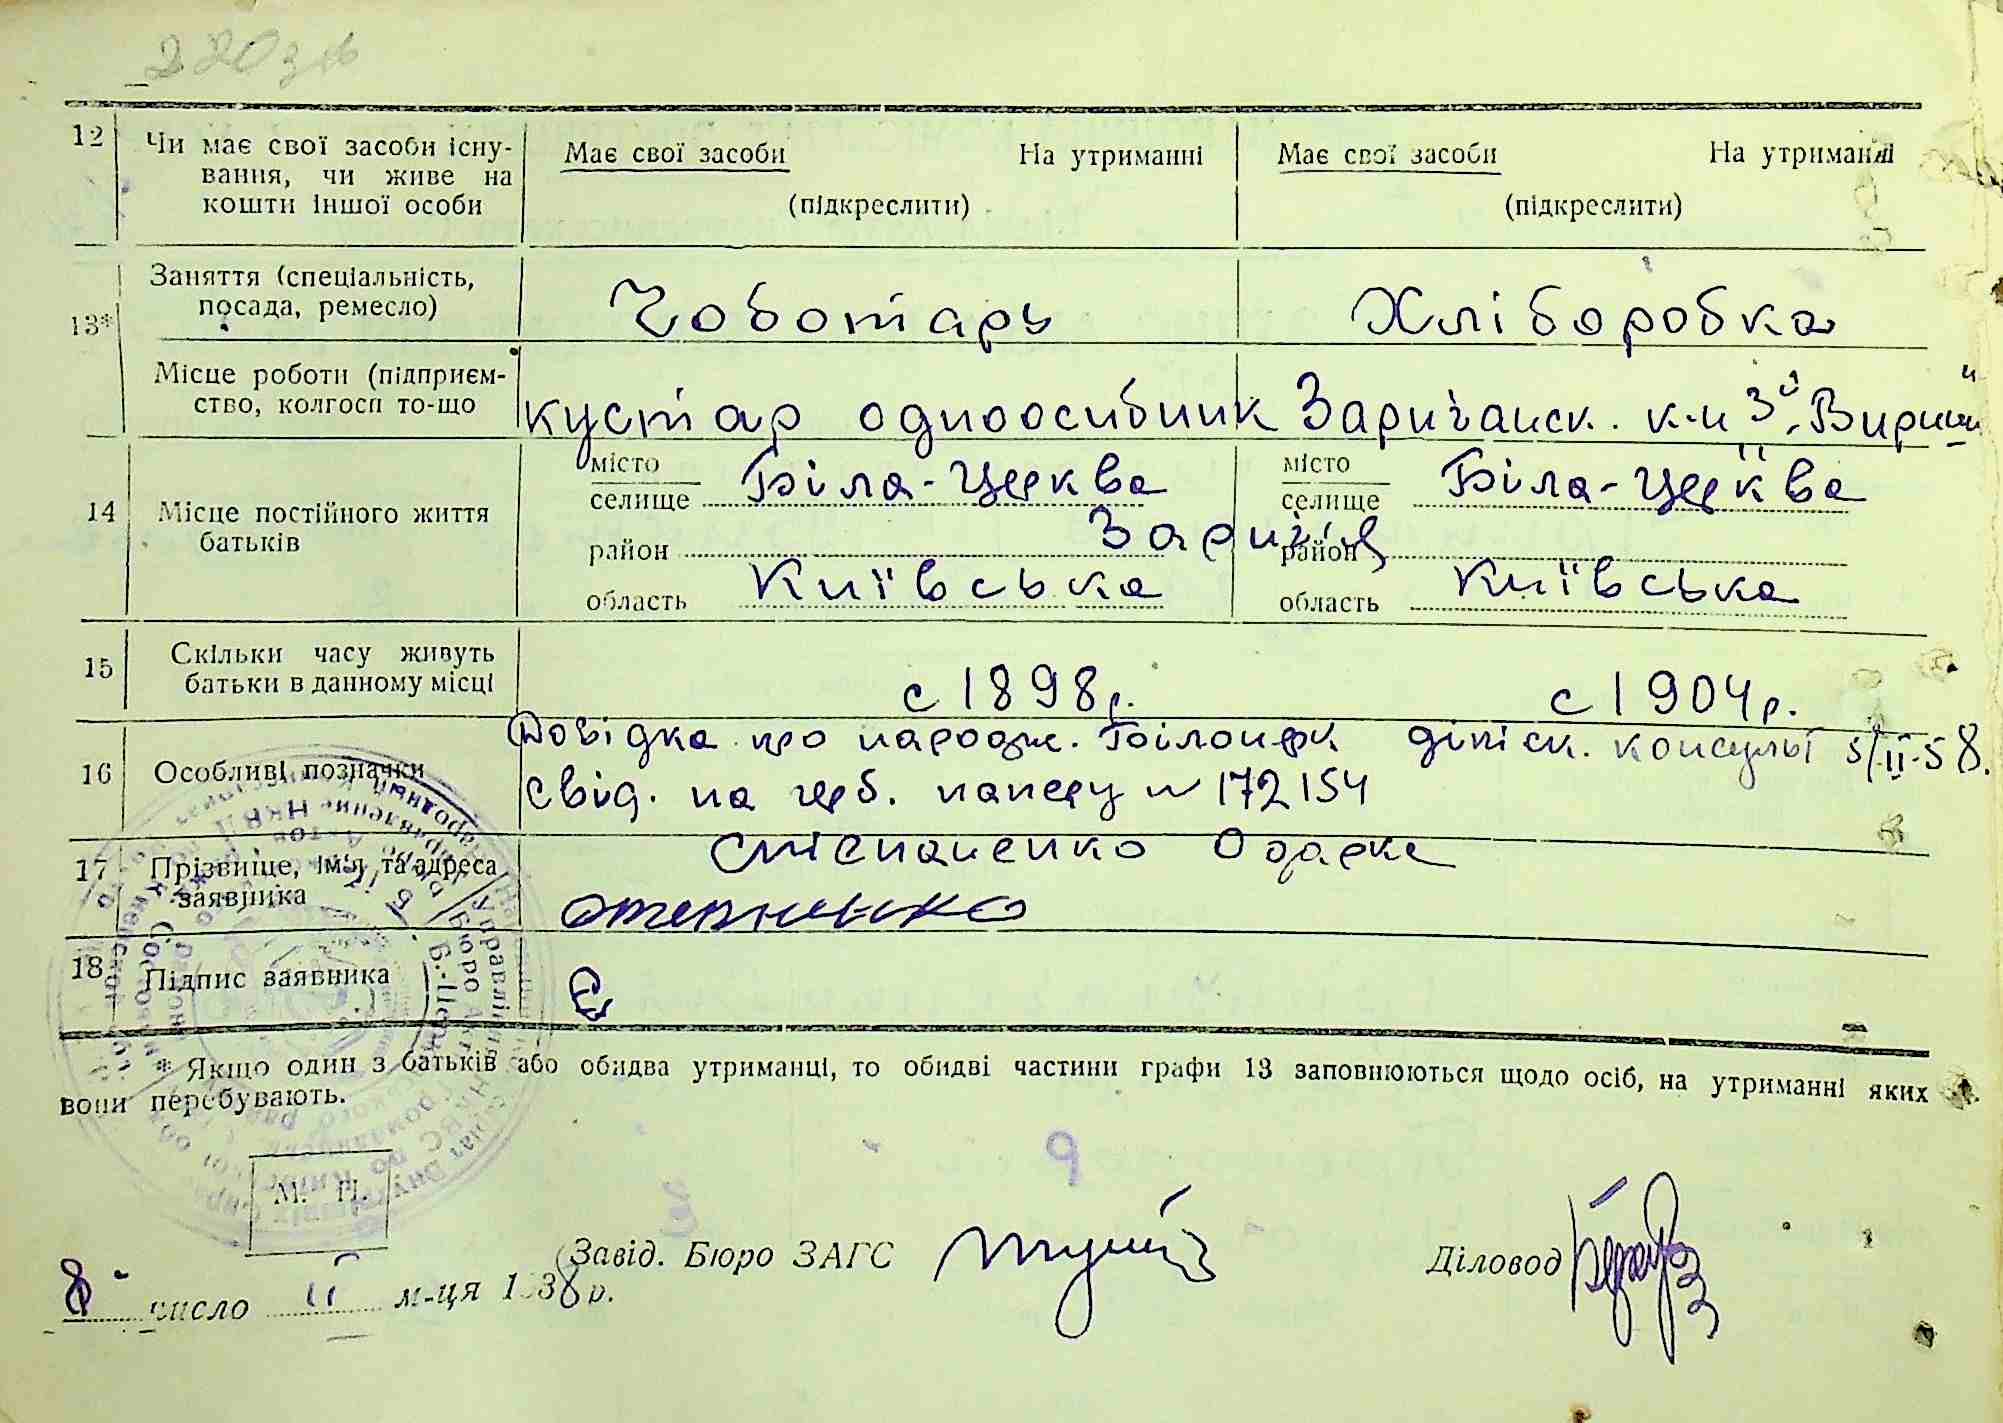 220 зв
12 Чи має свої засоби існу-
вання, чи живе на
кошти іншої особи
Має свої засоби На утриманні
(підкреслити)
Має свої засоби На утриманні
(підкреслити)
13* Заняття (спеціальність,
посада, ремесло)
Чоботарь
Хліборобка
Місце роботи (підприєм-
ство, колгосп то-що
кустар одноосибник
Заричанск. к-и
14 Місце постійного життя
батьків
місто
селище Біла-Церква
район Заричче
область Київська
місто
селище Біла-Церква
район
область Київська
15 Скільки часу живуть
батьки в данному місці
с 1898 р.
с 1904 р.
16 Особливі позначки
Довідка про народж. Білоцерк консульт 5/II-58.
свід. на герб. паперу № 172154
17 Прізвище, ім'я та адреса
заявника
Степаненко Одарка
18 Підпис заявника
* Якщо один з батьків або обидва утриманці, то обидві частини графи 13 заповнюються щодо осіб, на утриманні яких
вони перебувають.
М. П.
8 число II м-ця 1938 р.
Завід. Бюро ЗАГС
Діловод